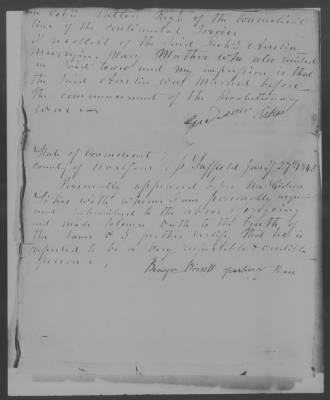 in Col'n Regt of the Connecticut
line of the Continental Service
I recollect of the said &c Austin
Marrying Mary Mather who also resided
in said town and my impression is that
the said Austin was married before
the commencement of the Revolutionary
war —
State of Connecticut
County of Hartford ss Suffield Jany 27th
Personally appeared before me Gideon
Sikes with whom I am personally acquainted
and subscribed to the above foregoing
and made solemn Oath to the truth of
the same & I further certify that he is
reputed to be a very reputable & credible
person
Bissell Peace